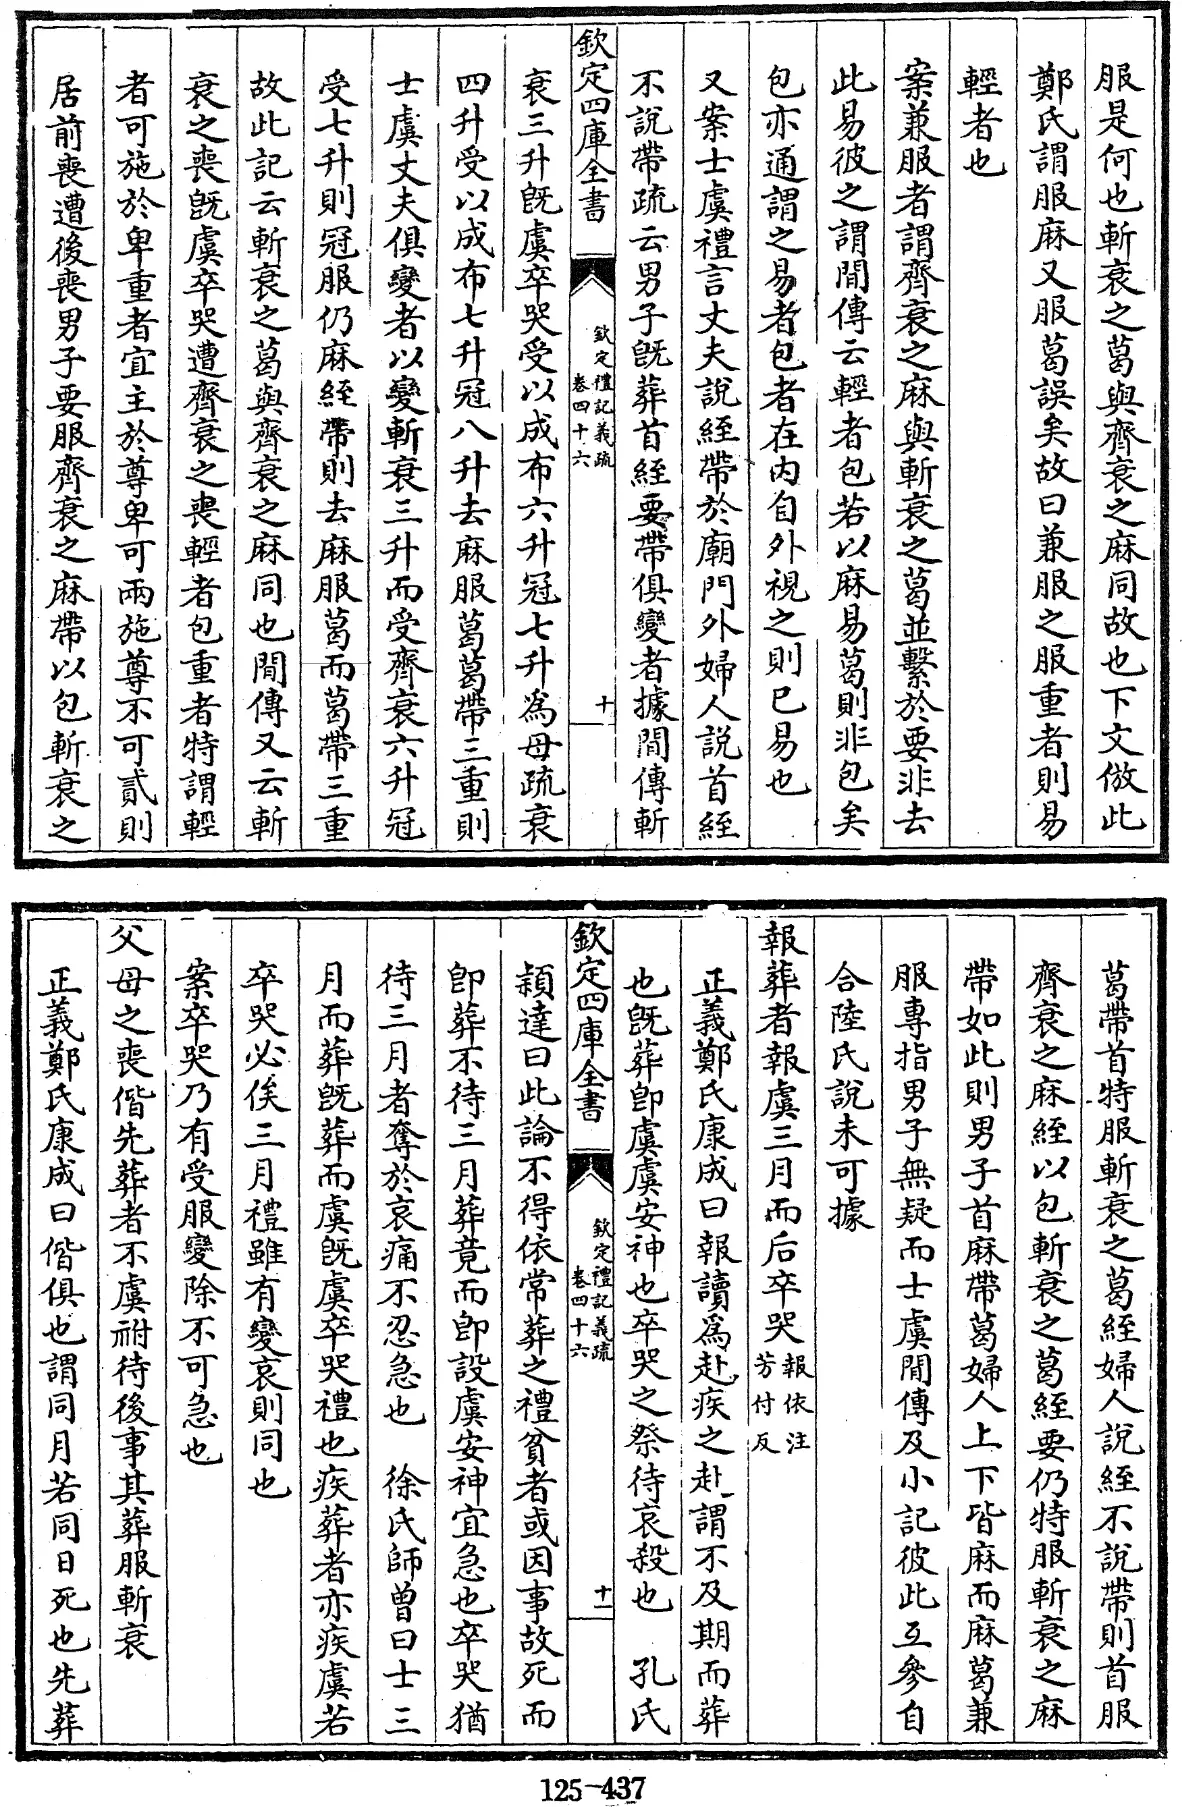 服是何也斬衰之葛與齊衰之麻同故也下文倣此
鄭氏謂服麻又服葛誤矣故曰兼服之服重者則易
輕者也
案兼服者謂齊衰之麻與斬衰之葛並繫於要非去
此易彼之謂間傳云輕者包若以麻易葛則非包矣
包亦通謂之易者包者在内自外視之則已易也
又案士虞禮言丈夫說絰帶於廟門外婦人說首絰
不說帶疏云男子旣葬首絰要帶俱變者據間傳斬
欽定四庫全書
欽定禮記義疏
卷四十六
十
衰三升旣虞卒哭受以成布六升冠七升爲母疏衰
四升受以成布七升冠八升去麻服葛葛帶三重則
士虞丈夫俱變者以變斬衰三升而受齊衰六升冠
受七升則冠服仍麻絰帶則去麻服葛而葛帶三重
故此記云斬衰之葛與齊衰之麻同也間傳又云斬
衰之喪旣虞卒哭遭齊衰之喪輕者包重者特謂輕
者可施於卑重者宜主於尊卑可兩施尊不可貳則
居前喪遭後喪男子要服齊衰之麻帶以包斬衰之
葛帶首特服斬衰之葛絰婦人說絰不說帶則首服
齊衰之麻絰以包斬衰之葛絰要仍特服斬衰之麻
帶如此則男子首麻帶葛婦人上下皆麻而麻葛兼
服專指男子無疑而士虞間傳及小記彼此互參自
合陸氏說未可據
報葬者報虞三月而后卒哭
報依注
芳付反
正義鄭氏康成曰報讀爲赴疾之赴謂不及期而葬
也旣葬卽虞虞安神也卒哭之祭待哀殺也　孔氏
欽定四庫全書
欽定禮記義疏
卷四十六
十
穎達曰此論不得依常葬之禮貧者或因事故死而
卽葬不待三月葬竟而卽設虞安神宜急也卒哭猶
待三月者奪於哀痛不忍急也　徐氏師曾曰士三
月而葬旣葬而虞旣虞卒哭禮也疾葬者亦疾虞若
卒哭必俟三月禮雖有變哀則同也
案卒哭乃有受服變除不可急也
父母之喪偕先葬者不虞祔待後事其葬服斬衰
正義鄭氏康成曰偕俱也謂同月若同日死也先葬
125-437